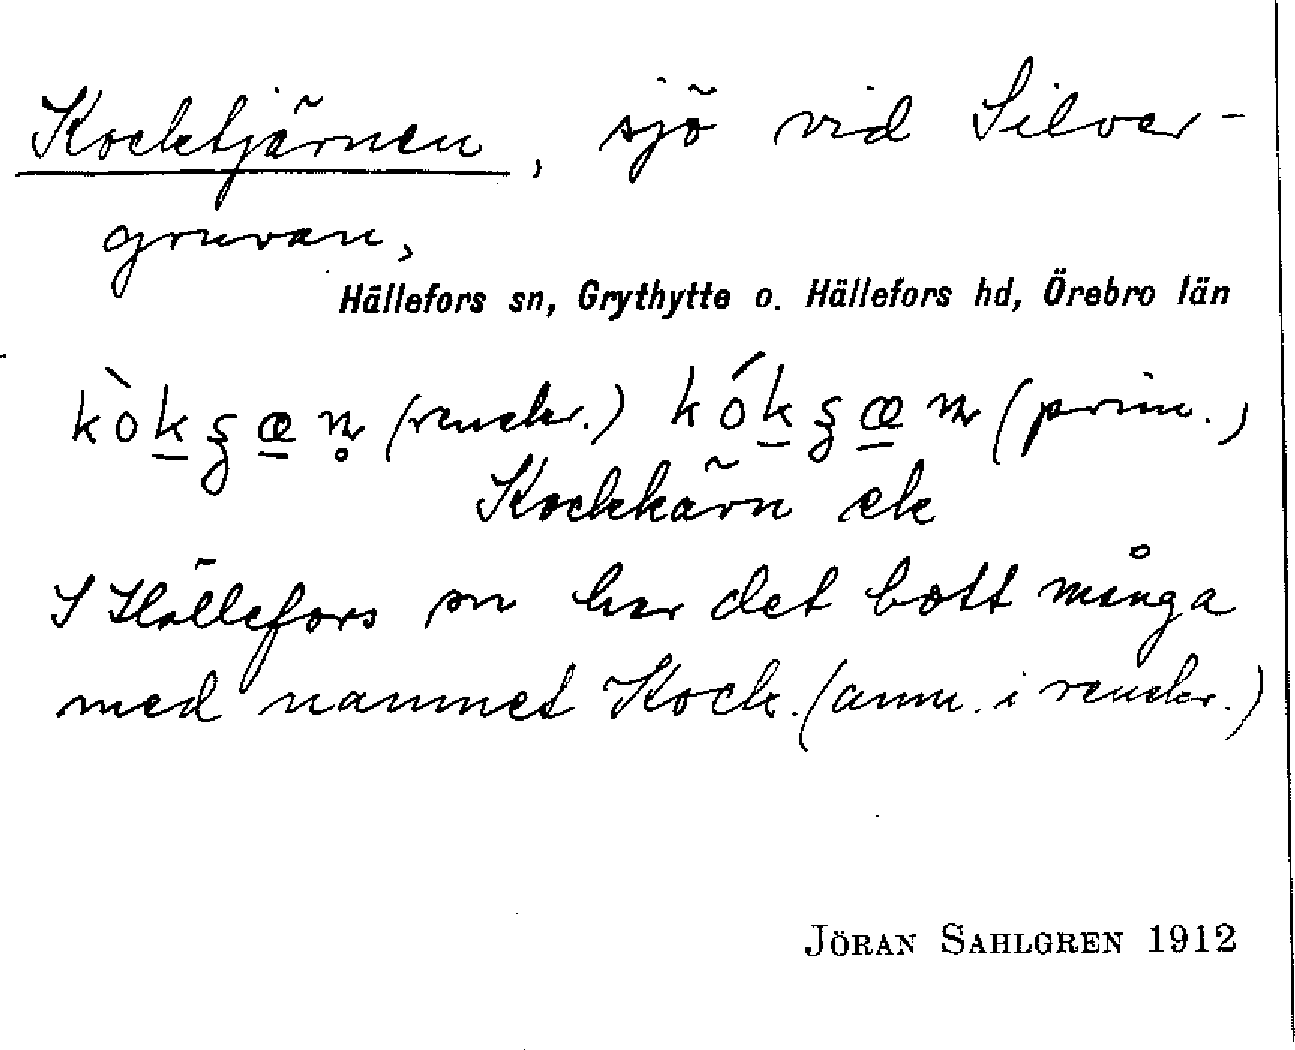 Kocktjärnen, sjö vid Silver-
gruvan,
Hällefors sn, Grythytte o. Hällefors hd, Örebro län
(renskr.) (prim.)
Kockkärn ek
I Hällefors sn har det bott många
med namnet Kock. (anm. i renskr.)
JÖRAN SAHLGREN 1912